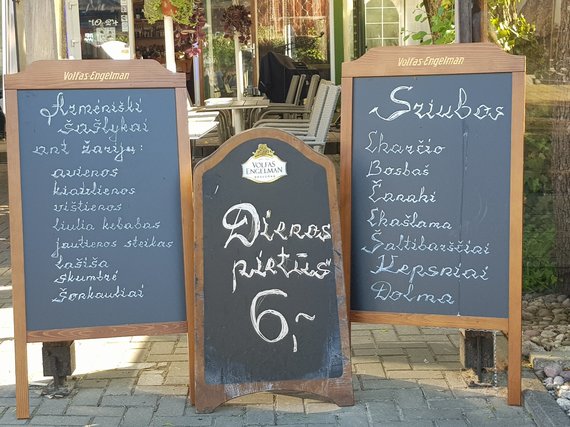 Volfas Engelman
Armėniški
šašlykai
ant žarijų:
avienos
kiaulienos
vištienos
liulia kebabas
jautienos steikas
lašiša
skumbrė
šonkauliai
VOLFAS
ENGELMAN
Dienos
pietūs
6,-
Volfas Engelman
Sriubos
Charčio
Bosbaš
Čanahi
Chašlama
Šaltibarščiai
Kepsniai
Dolma